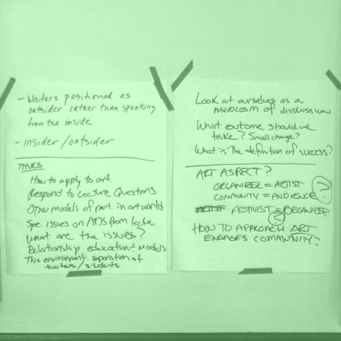 - Writers positioned as
outsider rather than speaking
from the inside
- insider/outsider
THURS
How to apply to art
Respond to Lecture Questions
Other models of part in artworld
Spe. issues on AIDS from
What are the issues?
Relationship education models
This environment. separation of
teachers/students
Look at ourselves as a
microcosm of discussion
What outcome should we
take? Small change?
What is the definition of success?
ART ASPECT?
ORGANIZER = ARTIST
COMMUNITY = AUDIENCE ?
ACTIVIST = ORGANIZER
HOW TO APPROACH ART
ENGAGES COMMUNITY?